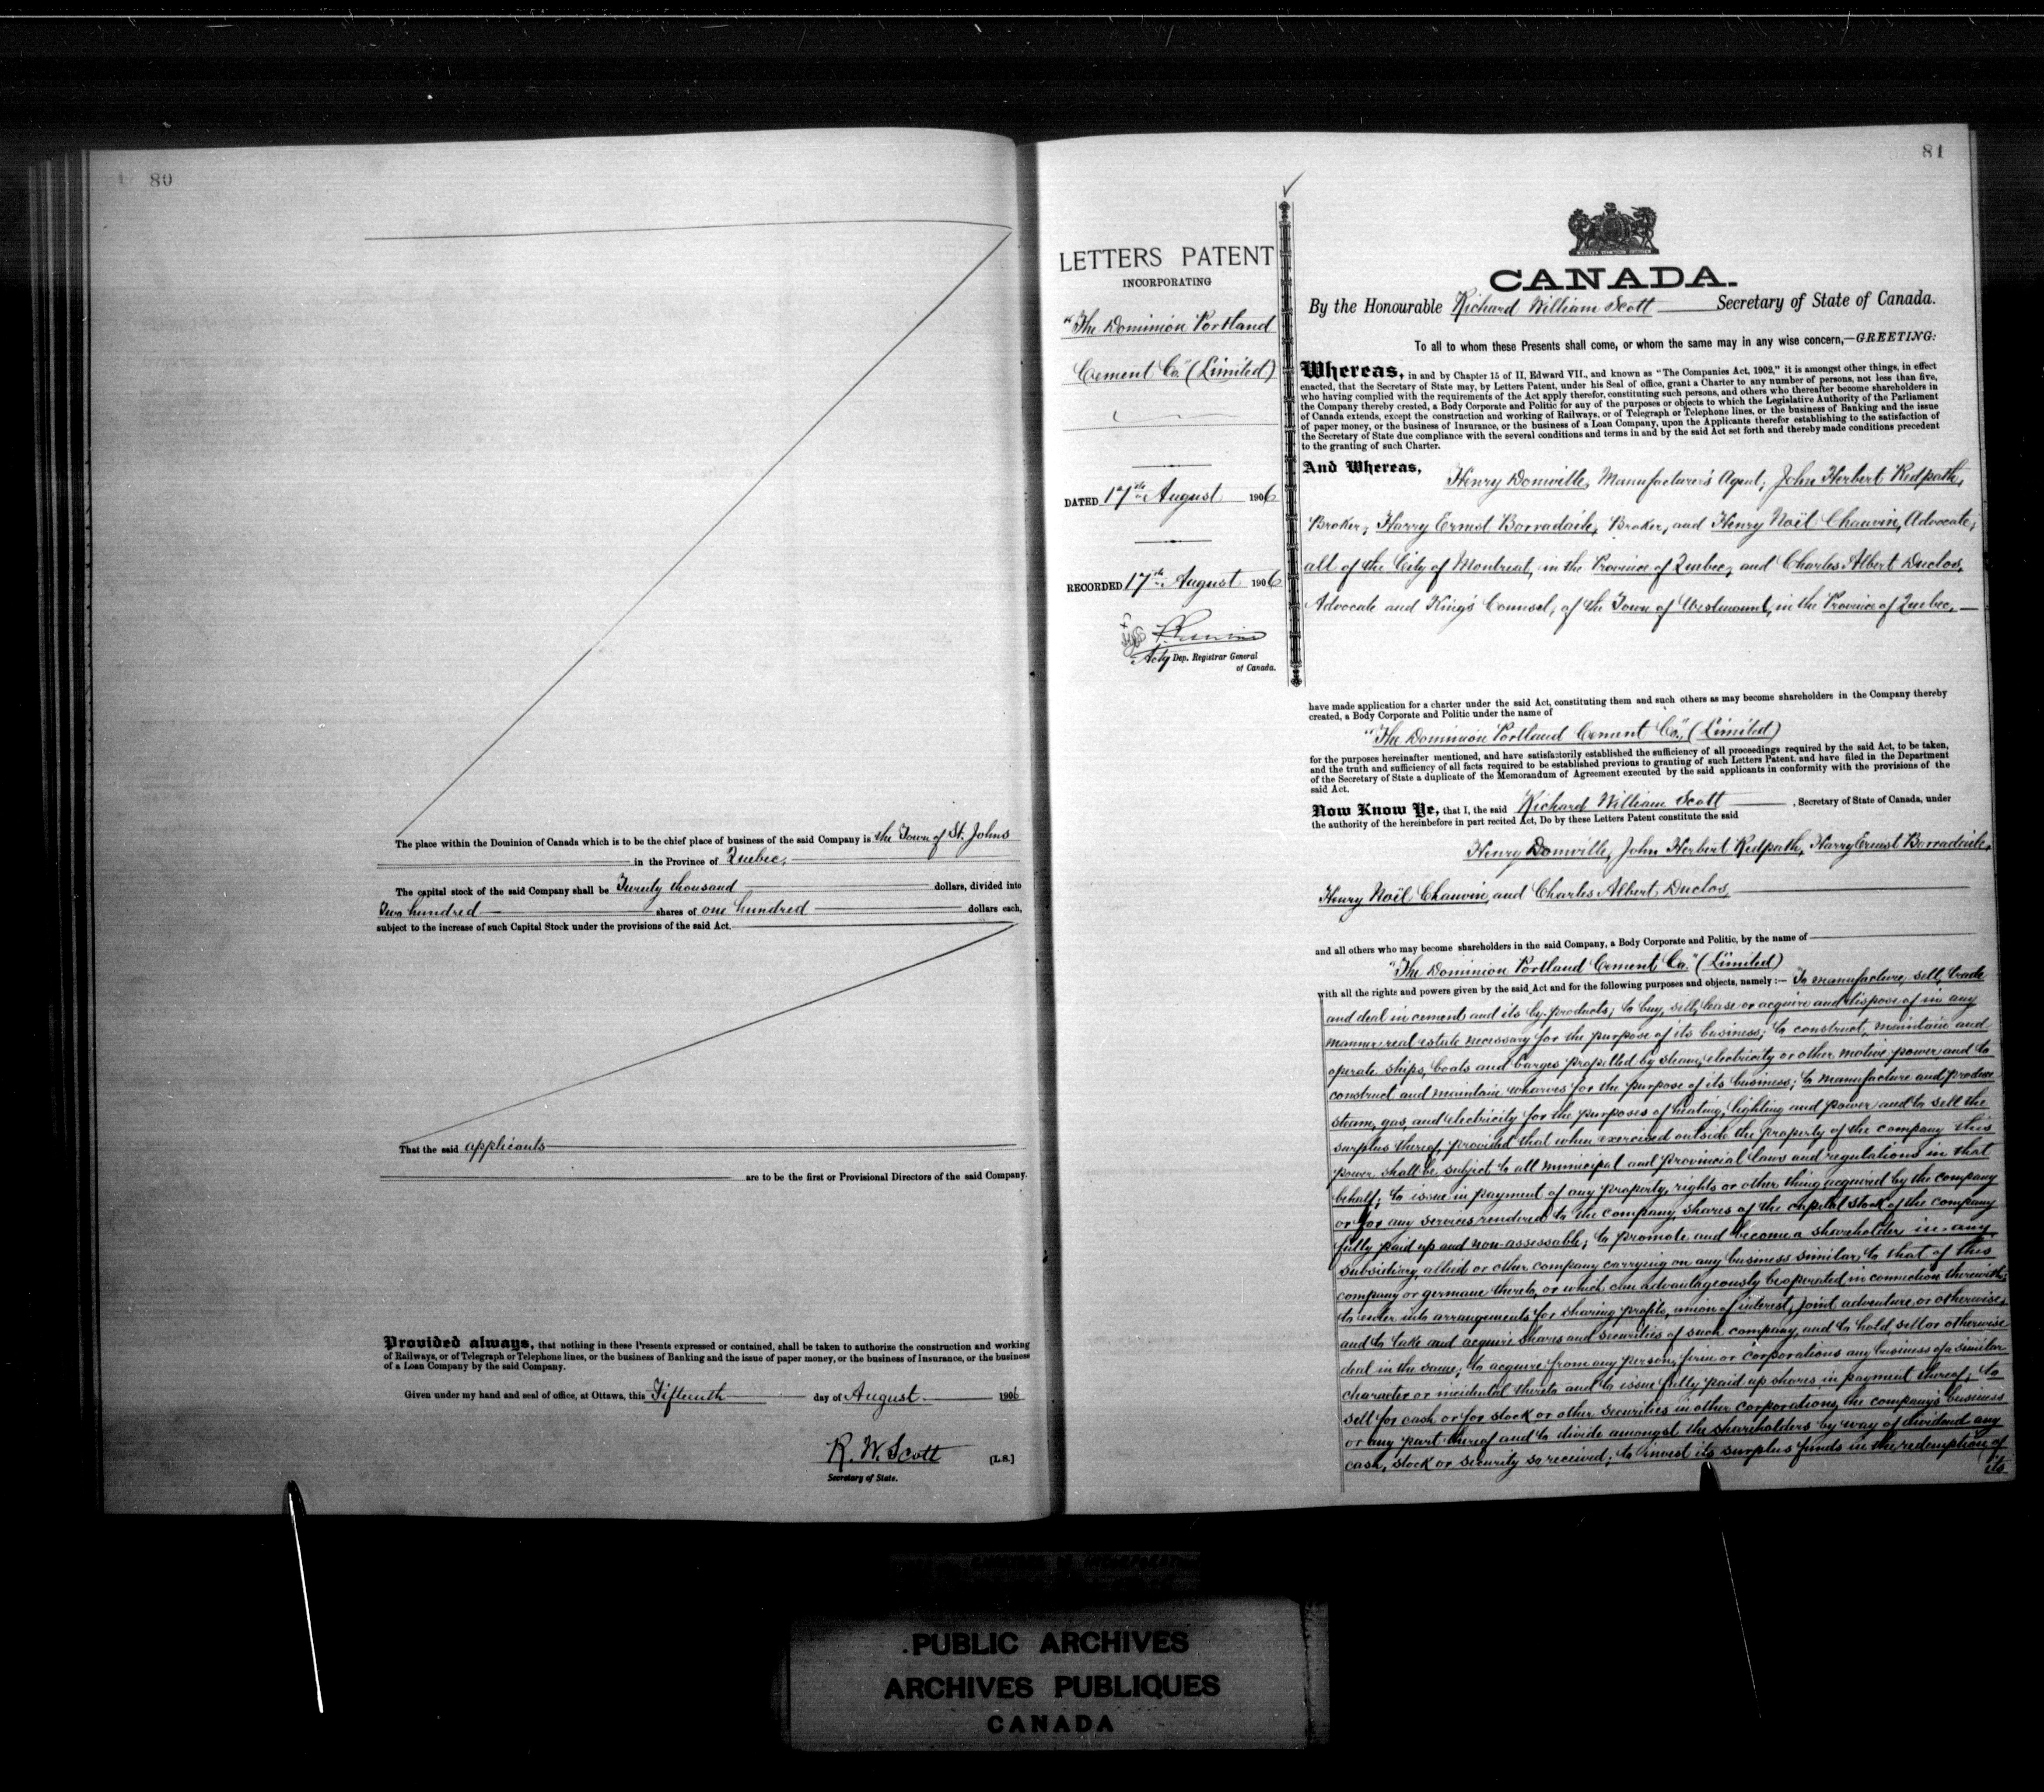 80
The place within the Dominion of Canada which is to be the chief place of business of the said Company is the Town of St. Johns
in the Province of Quebec,
The capital stock of the said Company shall be Twenty thousand dollars, divided into
Two hundred shares of one hundred dollars each,
subject to the increase of such Capital Stock under the provisions of the said Act.
That the said applicants
are to be the first or Provisional Directors of the said Company.
Provided always, that nothing in these Presents expressed or contained, shall be taken to authorize the construction and working
of Railways, or of Telegraph or Telephone lines, or the business of Banking and the issue of paper money, or the business of Insurance, or the business
of a Loan Company by the said Company.
Given under my hand and seal of office, at Ottawa, this Fifteenth day of August 1906
R. W. Scott
[L.S.]
Secretary of State.
81
LETTERS PATENT
INCORPORATING
"The Dominion Portland
Cement Co." (Limited)
DATED 17th August 1906
RECORDED 17th August 1906
Actg Dep. Registrar General
of Canada.
CANADA.
By the Honourable Richard William Scott Secretary of State of Canada.
To all to whom these Presents shall come, or whom the same may in any wise concern,—GREETING:
Whereas, in and by Chapter 15 of II, Edward VII., and known as "The Companies Act, 1902," it is amongst other things, in effect
enacted, that the Secretary of State may, by Letters Patent, under his Seal of office, grant a Charter to any number of persons, not less than five,
who having complied with the requirements of the Act apply therefor, constituting such persons, and others who thereafter become shareholders in
the Company thereby created, a Body Corporate and Politic for any of the purposes or objects to which the Legislative Authority of the Parliament
of Canada extends, except the construction and working of Railways, or of Telegraph or Telephone lines, or the business of Banking and the issue
of paper money, or the business of Insurance, or the business of a Loan Company, upon the Applicants therefor establishing to the satisfaction of
the Secretary of State due compliance with the several conditions and terms in and by the said Act set forth and thereby made conditions precedent
to the granting of such Charter.
And Whereas,
Henry Domville, Manufacturer's Agent; John Herbert Redpath,
Broker; Harry Ernest Borradaile, Broker, and Henry Noël Chauvin, Advocate;
all of the City of Montreal, in the Province of Quebec, and Charles Albert Duclos,
Advocate and King's Counsel, of the Town of Westmount, in the Province of Quebec,
have made application for a charter under the said Act, constituting them and such others as may become shareholders in the Company thereby
created, a Body Corporate and Politic under the name of
"The Dominion Portland Cement Co." (Limited)
for the purposes hereinafter mentioned, and have satisfactorily established the sufficiency of all proceedings required by the said Act, to be taken,
and the truth and sufficiency of all facts required to be established previous to granting of such Letters Patent, and have filed in the Department
of the Secretary of State a duplicate of the Memorandum of Agreement executed by the said applicants in conformity with the provisions of the
said Act.
Now Know Ye, that I, the said Richard William Scott, Secretary of State of Canada, under
the authority of the hereinbefore in part recited Act, Do by these Letters Patent constitute the said
Henry Domville, John Herbert Redpath, Harry Ernest Borradaile,
Henry Noël Chauvin, and Charles Albert Duclos,
and all others who may become shareholders in the said Company, a Body Corporate and Politic, by the name of
"The Dominion Portland Cement Co." (Limited)
with all the rights and powers given by the said Act and for the following purposes and objects, namely :— To manufacture, sell, trade
and deal in cement and its by-products; to buy, sell, lease or acquire and dispose of in any
manner real estate necessary for the purpose of its business; to construct, maintain and
operate ships, boats and barges propelled by steam, electricity or other motive power and to
construct and maintain wharves for the purpose of its business; to manufacture and produce
steam, gas, and electricity for the purposes of heating, lighting and power and to sell the
surplus thereof, provided that when exercised outside the property of the company this
power shall be subject to all municipal and provincial laws and regulations in that
behalf; to issue in payment of any property, rights or other thing acquired by the company
or for any services rendered to the company, shares of the capital stock of the company
fully paid up and non-assessable; to promote and become a shareholder in any
subsidiary, allied or other company carrying on any business similar to that of this
company or germane thereto, or which can advantageously be operated in connection therewith;
to enter into arrangements for sharing profits, union of interest, joint adventure or otherwise,
and to take and acquire shares and securities of such company, and to hold, sell or otherwise
deal in the same; to acquire from any person, firm or corporations any business of a similar
character or incidental thereto and to issue fully paid up shares in payment thereof; to
sell for cash or for stock or other securities in other corporations, the company's business
or any part thereof and to divide amongst the shareholders by way of dividend any
cash, stock or security so received; to invest its surplus funds in the redemption of
its
PUBLIC ARCHIVES
ARCHIVES PUBLIQUES
CANADA